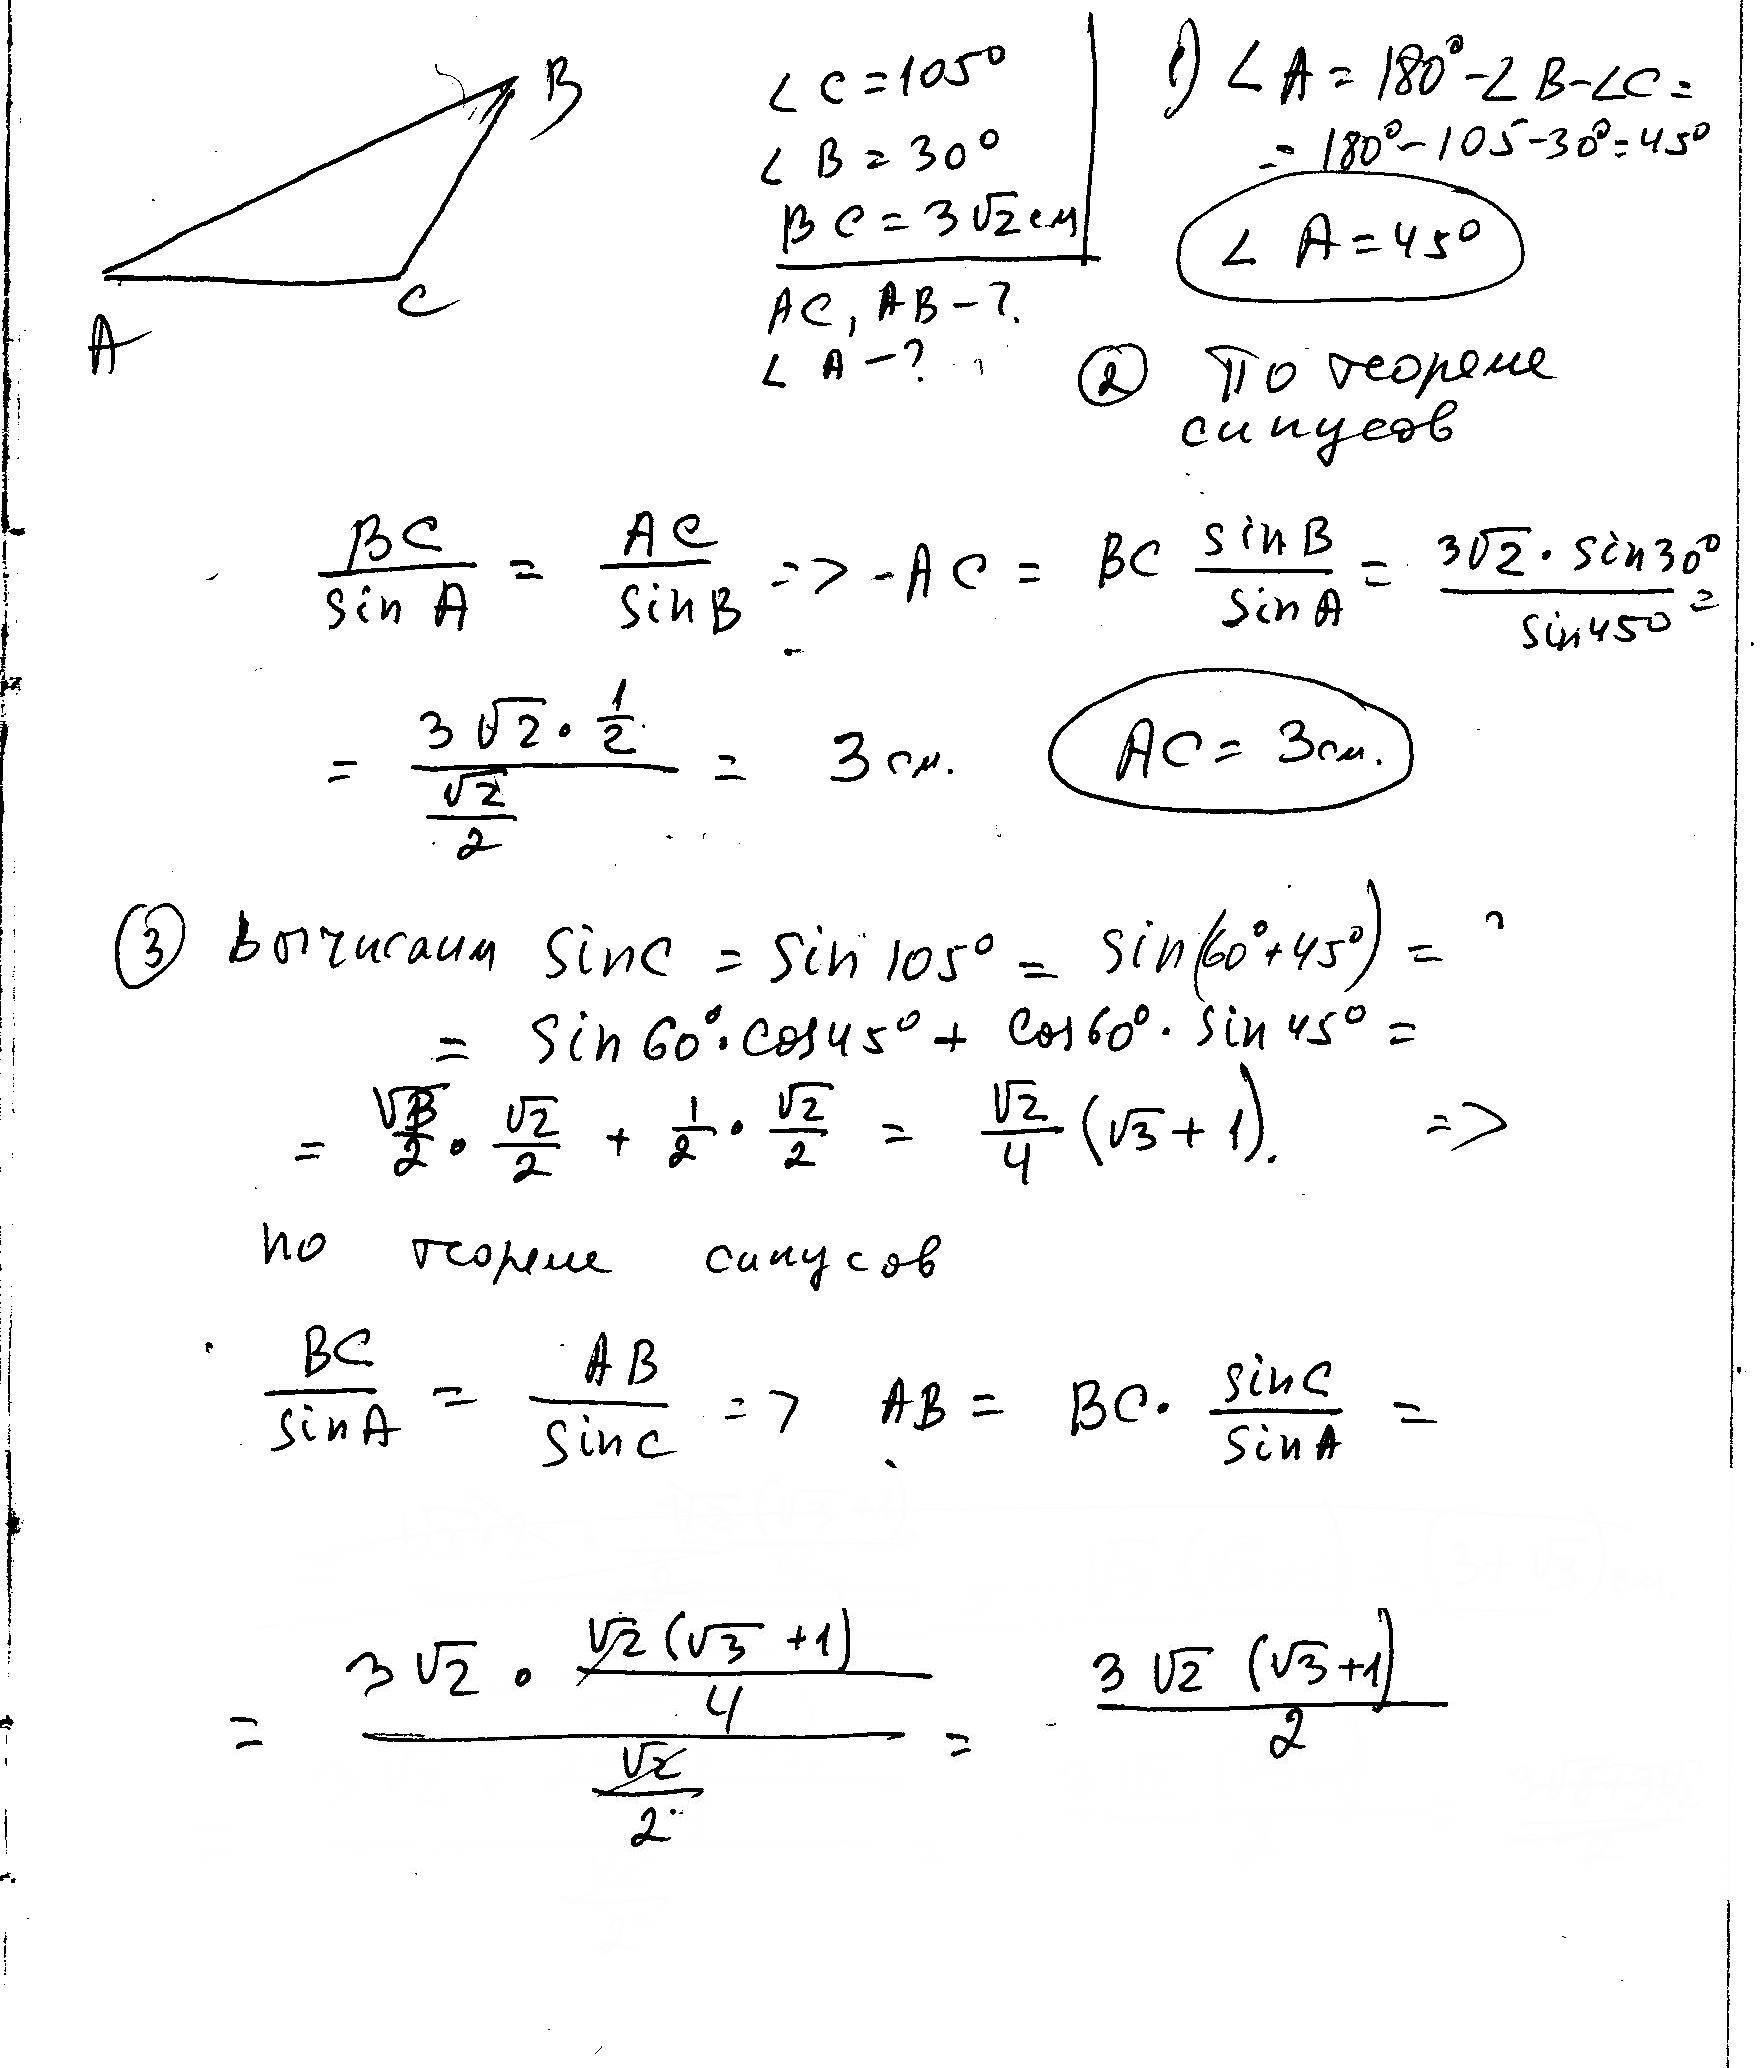 B
A
C
∠C=105°
∠B=30°
BC=3√2 см
AC, AB-?
∠A-?
1) ∠A=180°-∠B-∠C=
=180°-105-30°=45°
∠A=45°
② По теореме
синусов
BC/sin A = AC/sin B => AC = BC sin B/sin A = 3√2·sin30°/sin45° =
= (3√2·1/2)/(√2/2) = 3 см. AC=3см.
③ Вычислим sinC = sin 105° = sin(60°+45°) =
= sin 60°·cos45°+ cos60°·sin 45° =
= √3/2·√2/2 + 1/2·√2/2 = √2/4 (√3+1). =>
по теореме синусов
BC/sinA = AB/sinC => AB = BC·sinC/sinA =
= (3√2·√2(√3+1)/4)/(√2/2) = 3√2(√3+1)/2